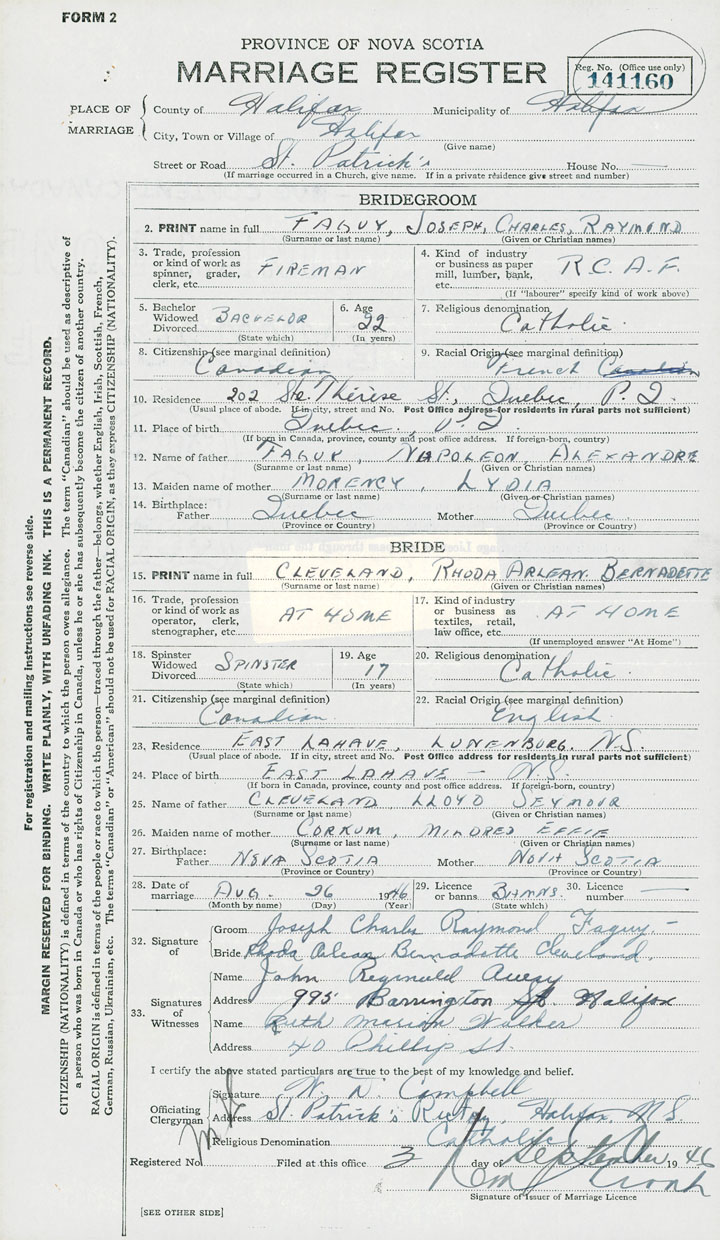 FORM 2
PROVINCE OF NOVA SCOTIA
MARRIAGE REGISTER
Reg. No. (Office use only)
141160
PLACE OF MARRIAGE
County of Halifax Municipality of Halifax
City, Town or Village of Halifax
(Give name)
Street or Road St. Patrick's House No. —
(If marriage occurred in a Church, give name. If in a private residence give street and number)
BRIDEGROOM
2. PRINT name in full FAGUY, JOSEPH, CHARLES, RAYMOND
(Surname or last name) (Given or Christian names)
3. Trade, profession or kind of work as spinner, grader, clerk, etc. FIREMAN
4. Kind of industry or business as paper mill, lumber, bank, etc. R.C.A.F.
(If "labourer" specify kind of work above)
5. Bachelor Widowed Divorced BACHELOR
(State which)
6. Age 22
(In years)
7. Religious denomination Catholic.
8. Citizenship (see marginal definition)
Canadian
9. Racial Origin (see marginal definition)
French Canadian
10. Residence 202 Ste. Thérèse St., Quebec, P.Q.
(Usual place of abode. If in city, street and No. Post Office address for residents in rural parts not sufficient)
11. Place of birth Quebec. P.Q.
(If born in Canada, province, county and post office address. If foreign-born, country)
12. Name of father FAGUY, NAPOLEON, ALEXANDRE
(Surname or last name) (Given or Christian names)
13. Maiden name of mother MORENCY, LYDIA
(Surname or last name) (Given or Christian names)
14. Birthplace: Father Quebec Mother Quebec.
(Province or Country) (Province or Country)
BRIDE
15. PRINT name in full CLEVELAND, RHODA ARLEAN BERNADETTE
(Surname or last name) (Given or Christian names)
16. Trade, profession or kind of work as operator, clerk, stenographer, etc. AT HOME
17. Kind of industry or business as textiles, retail, law office, etc. AT HOME
(If unemployed answer "At Home")
18. Spinster Widowed Divorced SPINSTER
(State which)
19. Age 17
(In years)
20. Religious denomination Catholic.
21. Citizenship (see marginal definition)
Canadian.
22. Racial Origin (see marginal definition)
English.
23. Residence EAST LAHAVE, LUNENBURG, N.S.
(Usual place of abode. If in city, street and No. Post Office address for residents in rural parts not sufficient)
24. Place of birth EAST LAHAVE — N.S.
(If born in Canada, province, county and post office address. If foreign-born, country)
25. Name of father CLEVELAND LLOYD SEYMOUR
(Surname or last name) (Given or Christian names)
26. Maiden name of mother CORKUM, MILDRED EFFIE
(Surname or last name) (Given or Christian names)
27. Birthplace: Father NOVA SCOTIA Mother NOVA SCOTIA
(Province or Country) (Province or Country)
28. Date of marriage AUG. 26 1946
(Month by name) (Day) (Year)
29. Licence or banns BANNS.
(State which)
30. Licence number —
32. Signature of
Groom Joseph Charles Raymond Faguy —
Bride Rhoda Arlean Bernadette Cleveland.
33. Signatures of Witnesses
Name John Reginald
Address 995 Barrington St. Halifax
Name Ruth Marion Walker
Address 40 Phillip St.
I certify the above stated particulars are true to the best of my knowledge and belief.
Officiating Clergyman
Signature W. D. Campbell
Address St. Patrick's Rectory, Halifax, N.S.
Religious Denomination Catholic
Registered No. Filed at this office 3 day of September 1946
Signature of Issuer of Marriage Licence
[SEE OTHER SIDE]
For registration and mailing instructions see reverse side.
MARGIN RESERVED FOR BINDING. WRITE PLAINLY, WITH UNFADING INK. THIS IS A PERMANENT RECORD.
CITIZENSHIP (NATIONALITY) is defined in terms of the country to which the person owes allegiance. The term "Canadian" should be used as descriptive of
a person who was born in Canada or who has rights of Citizenship in Canada, unless he or she has subsequently become the citizen of another country.
RACIAL ORIGIN is defined in terms of the people or race to which the person—traced through the father—belongs, whether English, Irish, Scottish, French,
German, Russian, Ukrainian, etc. The terms "Canadian" or "American" should not be used for RACIAL ORIGIN, as they express CITIZENSHIP (NATIONALITY).